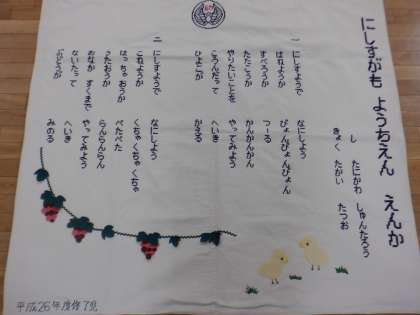 にしすがも ようちえん えんか
し たにかわ しゅんたろう
きょく たかい たつお
一 にしすようで なにしよう
はねようか ぴょんぴょんぴょん
すべろうか つーる
たたこうか かんかんかん
やりたいことを やってみよう
ころんだって へいき
ひよこが かえる
二 にしすようで なにしよう
こねようか くちゃくちゃくちゃ
はっちゃおうか ぺたぺた
うたおうか らんらんらん
おなか すくまで やってみよう
ないたって へいき
ぶどうが みのる
平成26年度修了児